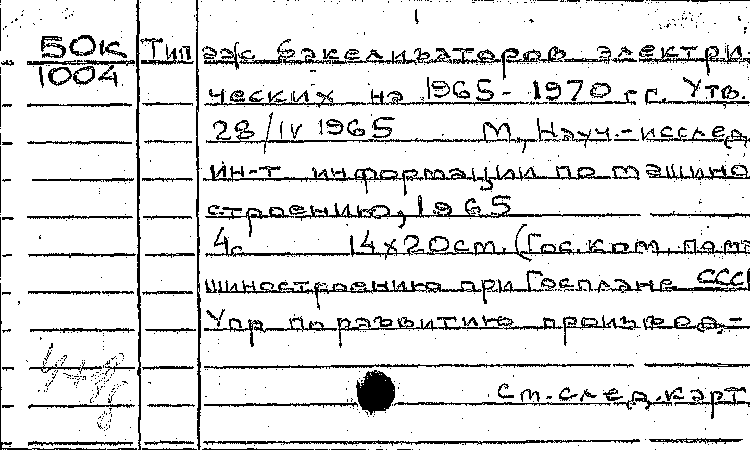 50к
1004
Типаж бакелизаторов электри-
ческих на 1965-1970 гг. Утв.
28/IV 1965 М, Науч.-исслед
ин-т информации по машино
строению, 1965
4с 14х20см. (Гос. ком. по ма
шиностроению при Госплане СССР
Упр по развитию производ-
См. след. карт